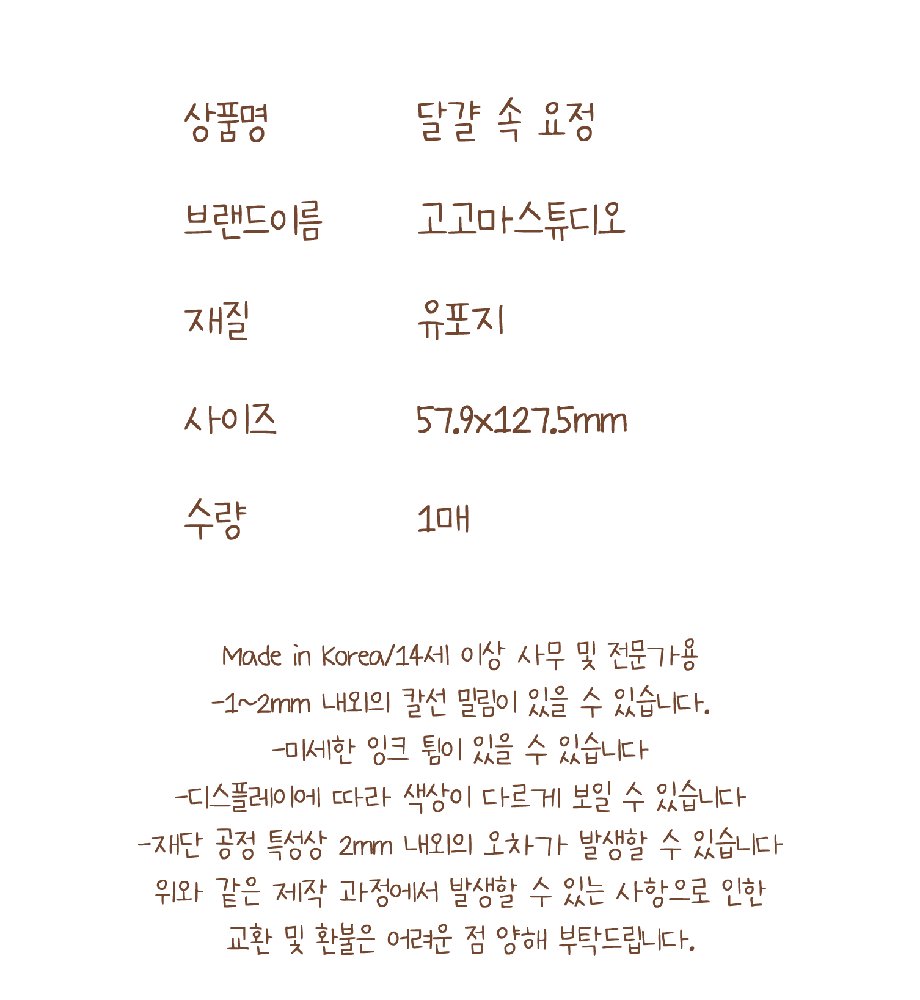 상품명 달걀 속 요정
브랜드이름 고고마스튜디오
재질 유포지
사이즈 57.9x127.5mm
수량 1매
Made in Korea/14세 이상 사무 및 전문가용
-1~2mm 내외의 칼선 밀림이 있을 수 있습니다.
-미세한 잉크 튐이 있을 수 있습니다
-디스플레이에 따라 색상이 다르게 보일 수 있습니다
-재단 공정 특성상 2mm 내외의 오차가 발생할 수 있습니다
위와 같은 제작 과정에서 발생할 수 있는 사항으로 인한
교환 및 환불은 어려운 점 양해 부탁드립니다.